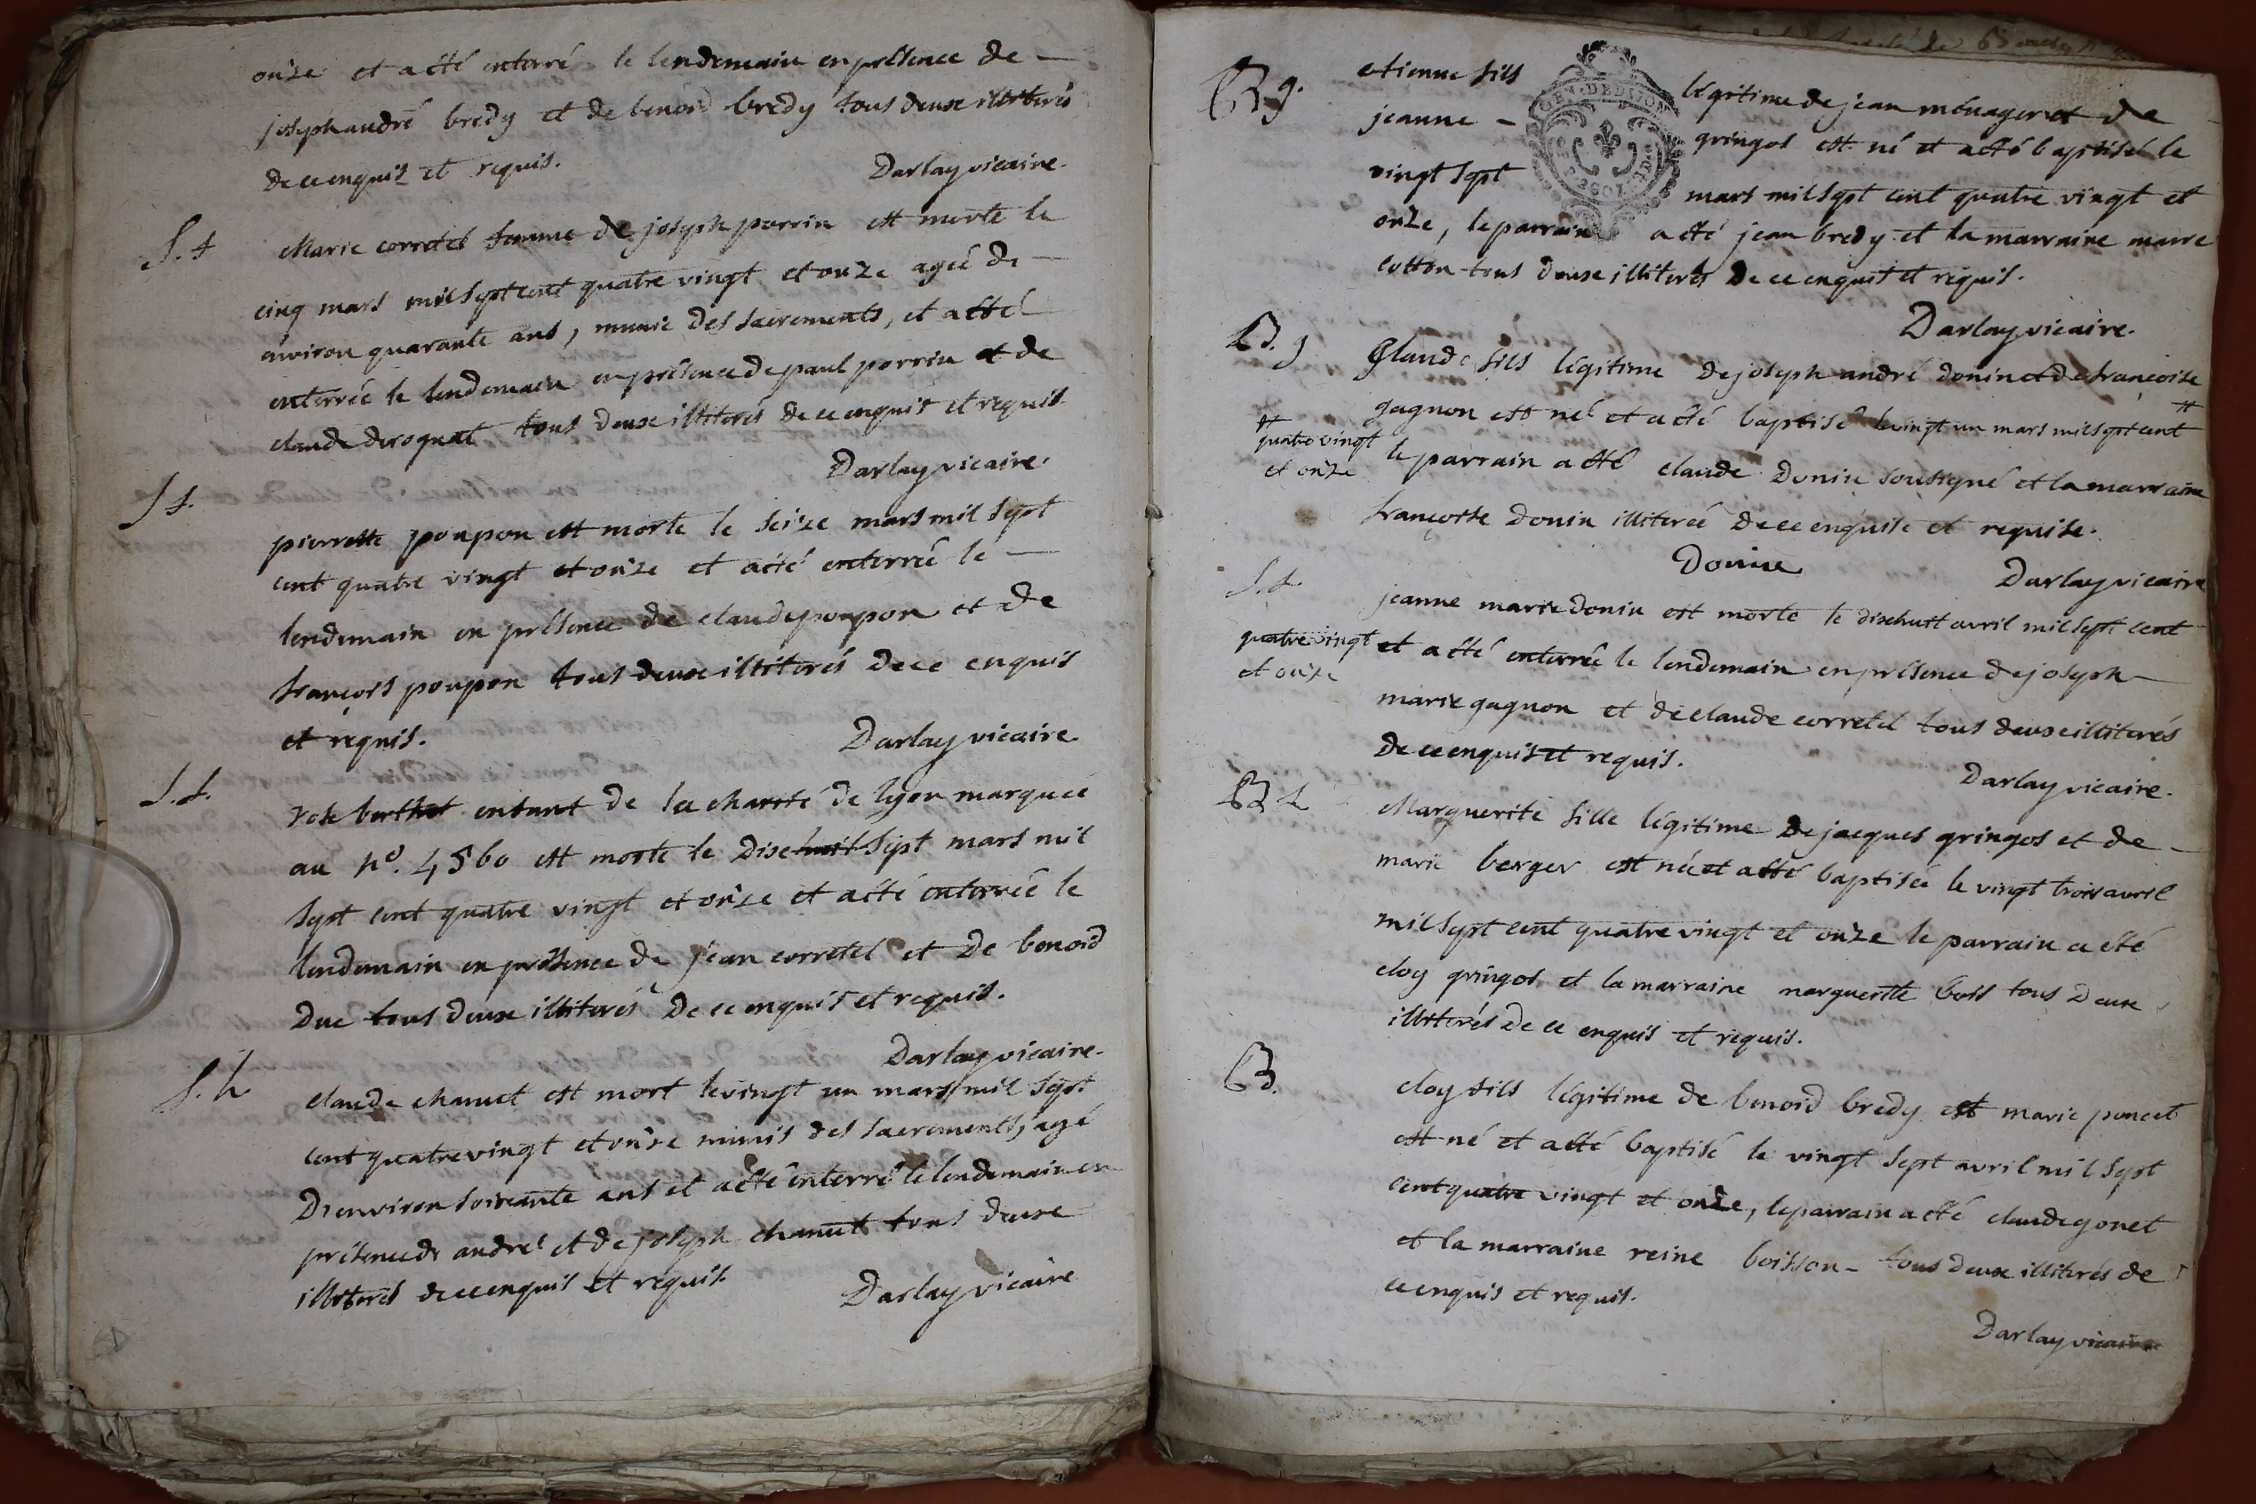 onze et a été enterré le lendemain en présence de
joseph andré bredy et de benoid bredy tous deux illiterés
de ce enquis et requis.
Darlay vicaire.
S. f
Marie corretel femme de joseph perrin est morte le
cinq mars mil sept cent quatre vingt et onze agée de
environ quarante ans, munie des sacrements, et a été
enterrée le lendemain en présence de paul perrin et de
claude deroquat tous deux illiterés de ce enquis et requis
Darlay vicaire.
S f.
pierrette poupon est morte le seize mars mil sept
cent quatre vingt et onze et a été enterrée le
lendemain en présence de claude poupon et de
françois poupon tous deux illiterés de ce enquis
et requis.
Darlay vicaire
S. f.
rose berthet enfant de la charité de lyon marquée
au n°. 4560 est morte le dix huit sept mars mil
sept cent quatre vingt et onze et a été enterrée le
lendemain en présence de jean corretel et de benoid
duc tous deux illiterés de ce enquis et requis.
Darlay vicaire.
S. h
claude chanut est mort le vingt un mars mil sept
cent quatre vingt et onze munis des sacrements, agé
D'environ soixante ans et a été enterré le lendemain en
présence de andré et de joseph chanut tous deux
illiterés de ce enquis et requis.
Darlay vicaire
B g.
etienne fils légitime de jean ménager et de
jeanne - gringos est né et a été baptisé le
vingt sept mars mil sept cent quatre vingt et
onze, le parrain a été jean bredy et la marraine marie
cotton tous deux illiterés de ce enquis et requis.
GEN. DE DIJON
Darlay vicaire.
B. g
Glaude fils légitime de joseph andré donin et de françoise
gagnon est né et a été baptisé le vingt un mars mil sept cent #
# quatre vingt
et onze
le parrain a été claude Donin sousigné et la marraine
françoise donin illiterée de ce enquise et requise.
Donin
Darlay vicaire
S. f.
jeanne marie donin est morte le dixhuit avril mil sept cent
quatre vingt
et onze
et a été enterrée le lendemain en présence de joseph
marie gagnon et de claude corretel tous deux illiterés
de ce enquis et requis.
Darlay vicaire.
B f
Marguerite fille légitime de jacques gringos et de
marie berger est née et a été baptisée le vingt trois avril
mil sept cent quatre vingt et onze le parrain a été
eloy gringos et la marraine marguerite bois tous deux
illiterés de ce enquis et requis.
B.
eloy fils légitime de benoid bredy et marie poncet
est né et a été baptisé le vingt sept avril mil sept
cent quatre vingt et onze, le parrain a été claude gonet
et la marraine reine boisson - tous deux illiterés de
ce enquis et requis.
Darlay vicaire